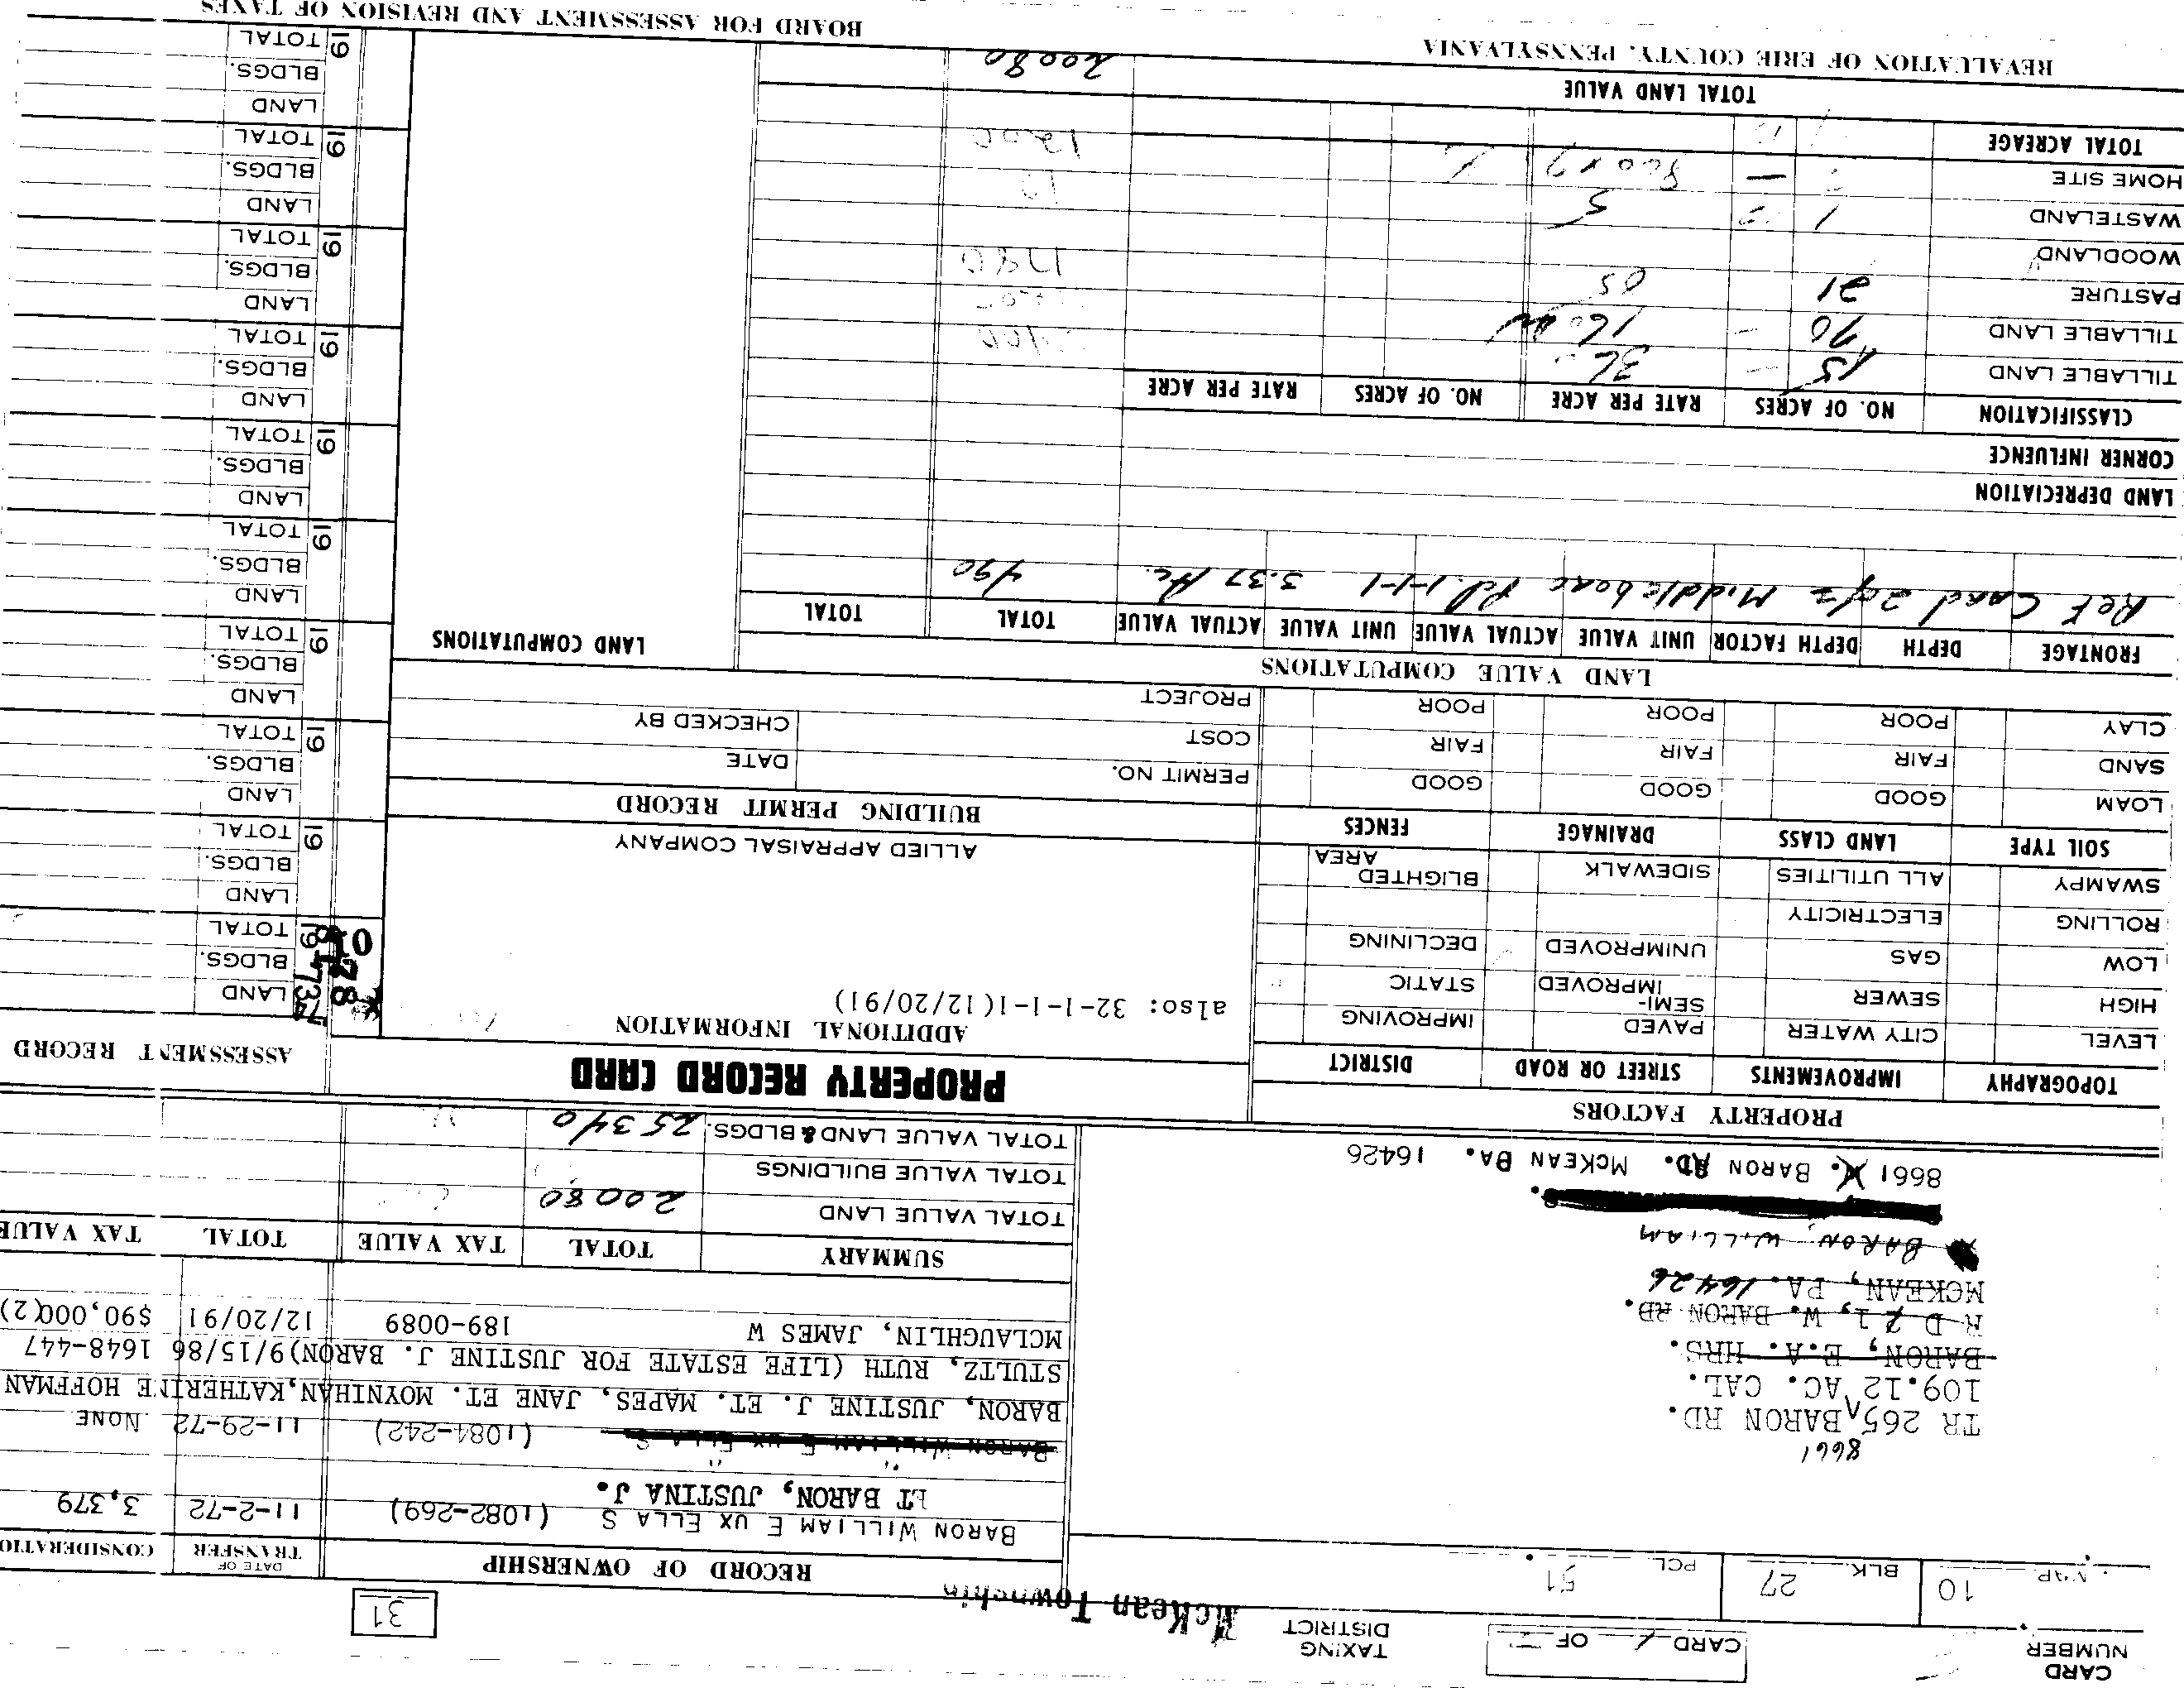 CARD NUMBER
CARD 1 OF
TAXING DISTRICT McKean Township
31
MAP 10 BLK. 27 PCL. 51
RECORD OF OWNERSHIP DATE OF TRANSFER CONSIDERATIO
BARON WILLIAM E UX ELLA S (1082-269) 11-2-72 3,379
ET BARON, JUSTINA J.
" "
BARON WILLIAM E UX ELLA S (1084-242) 11-29-72 NONE
BARON, JUSTINE J. ET. MAPES, JANE ET. MOYNIHAN, KATHERINE HOFFMAN
STULTZ, RUTH (LIFE ESTATE FOR JUSTINE J. BARON) 9/15/86 1648-447
MCLAUGHLIN, JAMES W 189-0089 12/20/91 $90,000(2)
8661
TR 265 BARON RD.
109.12 AC. CAL.
BARON, E.A. HRS.
R D #1, W. BARON RD.
MCKEAN, PA. 16426
BARON, WILLIAM
8661 W. BARON RD. MCKEAN PA. 16426
SUMMARY TOTAL TAX VALUE TOTAL TAX VALUE
TOTAL VALUE LAND 20080
TOTAL VALUE BUILDINGS
TOTAL VALUE LAND & BLDGS. 25340
PROPERTY FACTORS
TOPOGRAPHY IMPROVEMENTS STREET OR ROAD DISTRICT
LEVEL CITY WATER PAVED IMPROVING
HIGH SEWER SEMI-IMPROVED STATIC
LOW GAS UNIMPROVED DECLINING
ROLLING ELECTRICITY
SWAMPY ALL UTILITIES SIDEWALK BLIGHTED AREA
SOIL TYPE LAND CLASS DRAINAGE FENCES
LOAM GOOD GOOD GOOD
SAND FAIR FAIR FAIR
CLAY POOR POOR POOR
PROPERTY RECORD CARD
ADDITIONAL INFORMATION
also: 32-1-1-1(12/20/91)
ALLIED APPRAISAL COMPANY
BUILDING PERMIT RECORD
PERMIT NO. DATE
COST CHECKED BY
PROJECT
ASSESSMENT RECORD
LAND
BLDGS.
19 TOTAL
LAND
BLDGS.
19 TOTAL
LAND
BLDGS.
19 TOTAL
LAND
BLDGS.
19 TOTAL
LAND
BLDGS.
19 TOTAL
LAND
BLDGS.
19 TOTAL
LAND
BLDGS.
19 TOTAL
LAND
BLDGS.
19 TOTAL
LAND
BLDGS.
19 TOTAL
LAND
BLDGS.
19 TOTAL
LAND VALUE COMPUTATIONS
FRONTAGE DEPTH DEPTH FACTOR UNIT VALUE ACTUAL VALUE UNIT VALUE ACTUAL VALUE TOTAL TOTAL LAND COMPUTATIONS
Ref Card 2 of 2 Middleboro Rd. 1-1-1 3.37 Ac. 490
LAND DEPRECIATION
CORNER INFLUENCE
CLASSIFICATION NO. OF ACRES RATE PER ACRE NO. OF ACRES RATE PER ACRE
TILLABLE LAND 15
TILLABLE LAND 70 160
PASTURE 21
WOODLAND
WASTELAND 1 5 10
HOME SITE 1200
TOTAL ACREAGE
TOTAL LAND VALUE 20080
REVALUATION OF ERIE COUNTY, PENNSYLVANIA
BOARD FOR ASSESSMENT AND REVISION OF TAXES